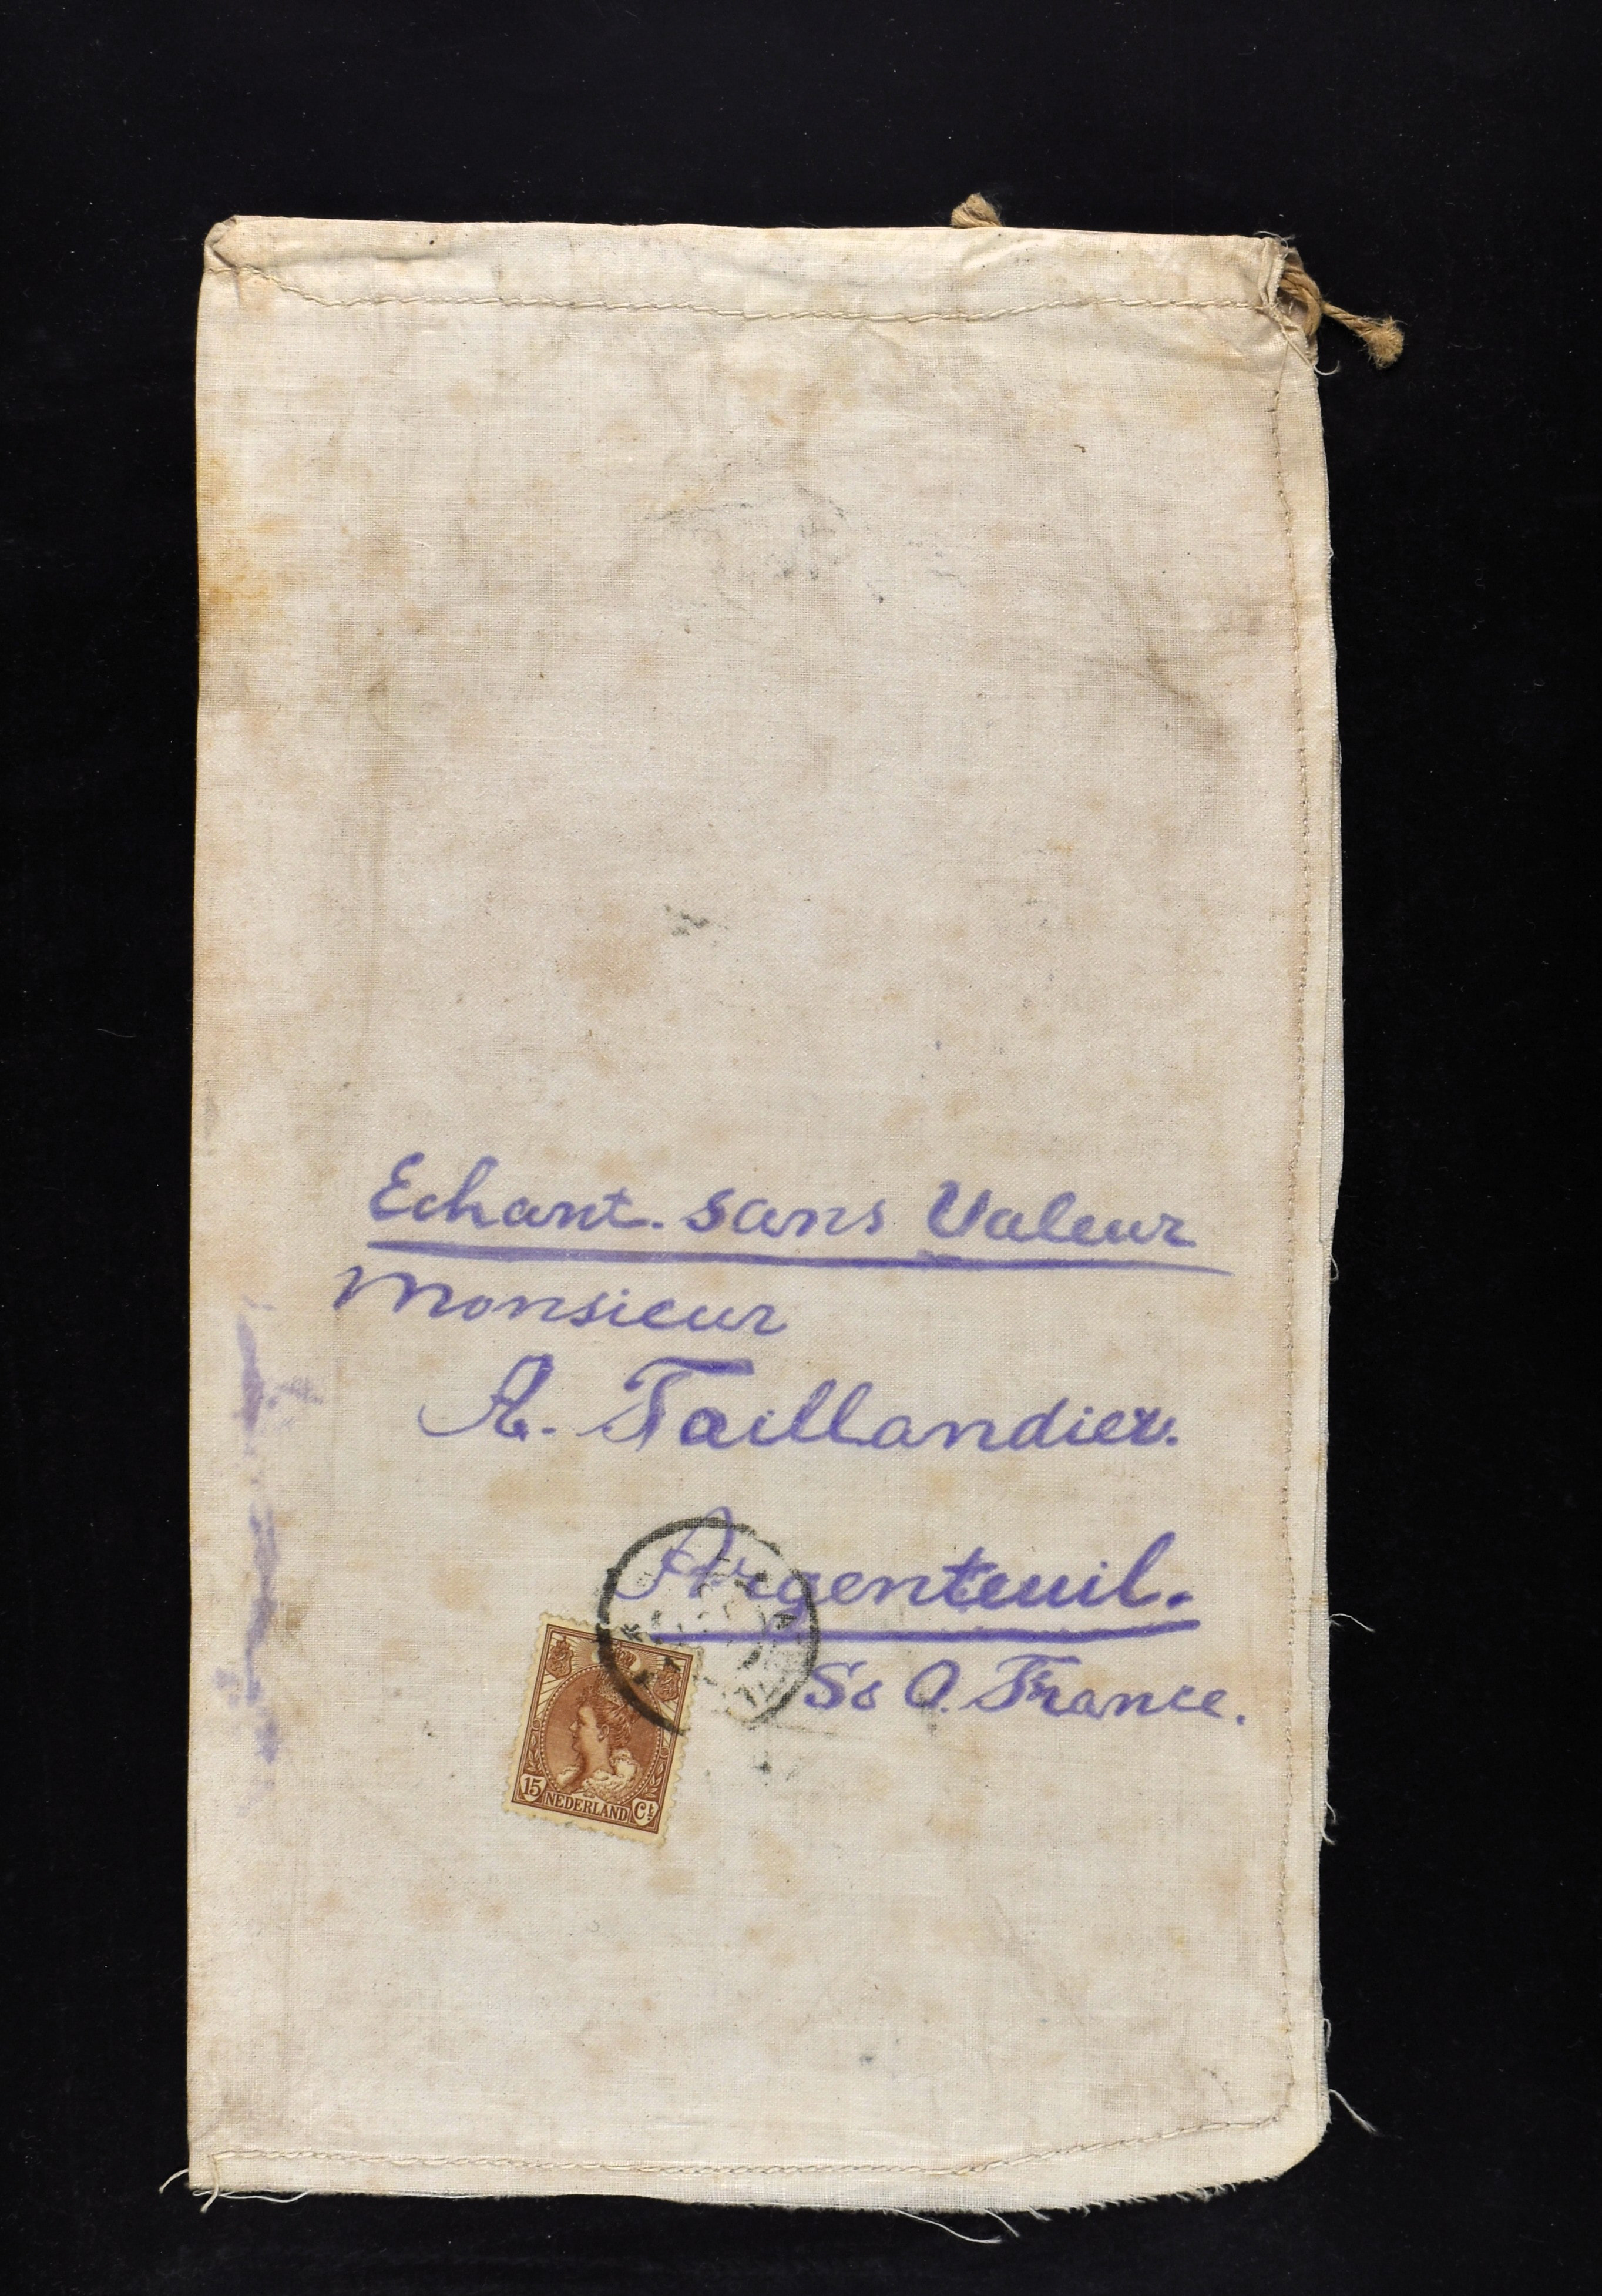 Echant. sans Valeur
Monsieur
A. Taillandier.
Argenteuil.
S&O. France.
15 NEDERLAND Ct